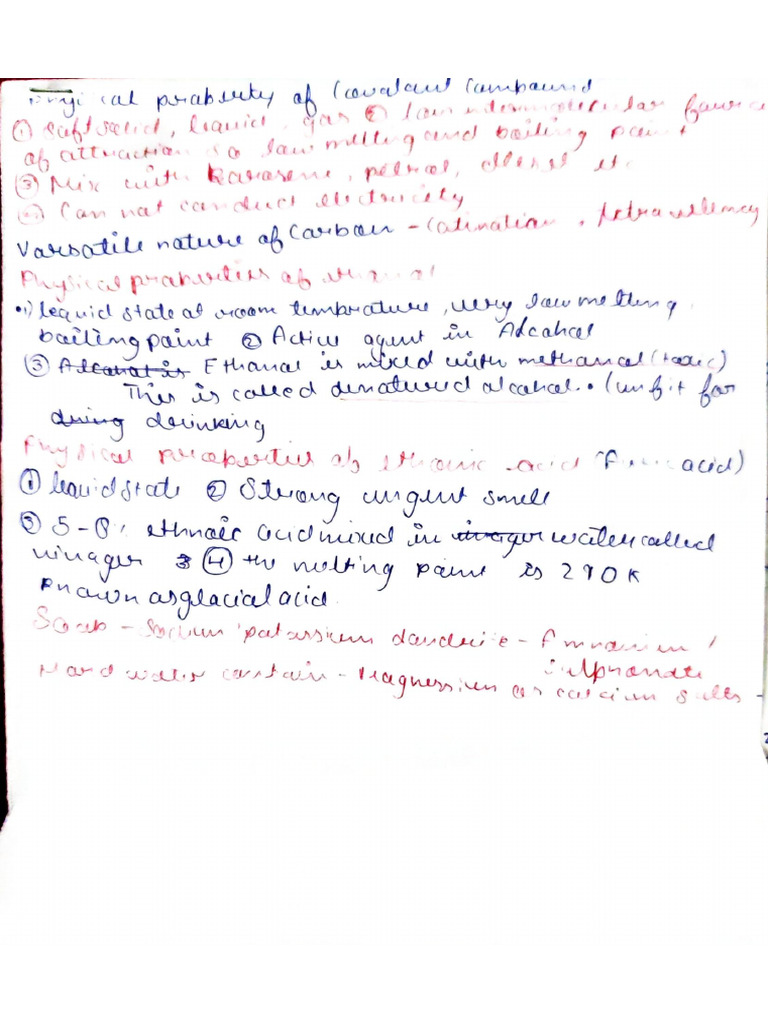 Physical praberty of Covalent Compound
① Saft solid, liquid, gas ② low intermolecular
of attraction so low melting and bailing paint
③ Mix with Karasene, petrol, diesel etc
④ Can nat canduct electricity
Varsatile nature of Carbon - Catination, tetravellency
Physical praperties of
1) lequid state at room temprature, very law melting
bailing paint ② Active agent in Alcahal
③ Alcahal is Ethanal is mixed with methanal (toxic)
This is called denatured alcahal. (unfit for
drinking
Physical praperties of ethanic acid acid)
① lequid state ② Strong ungent smell
③ 5-8% ethnaic acid mixed in water called
vinager ④ the melting paint is 290K
Knawn as glacial acid
Soab - Sodium patassium
sulphonate
Hard water cantain - Magnessium or calcium salts -